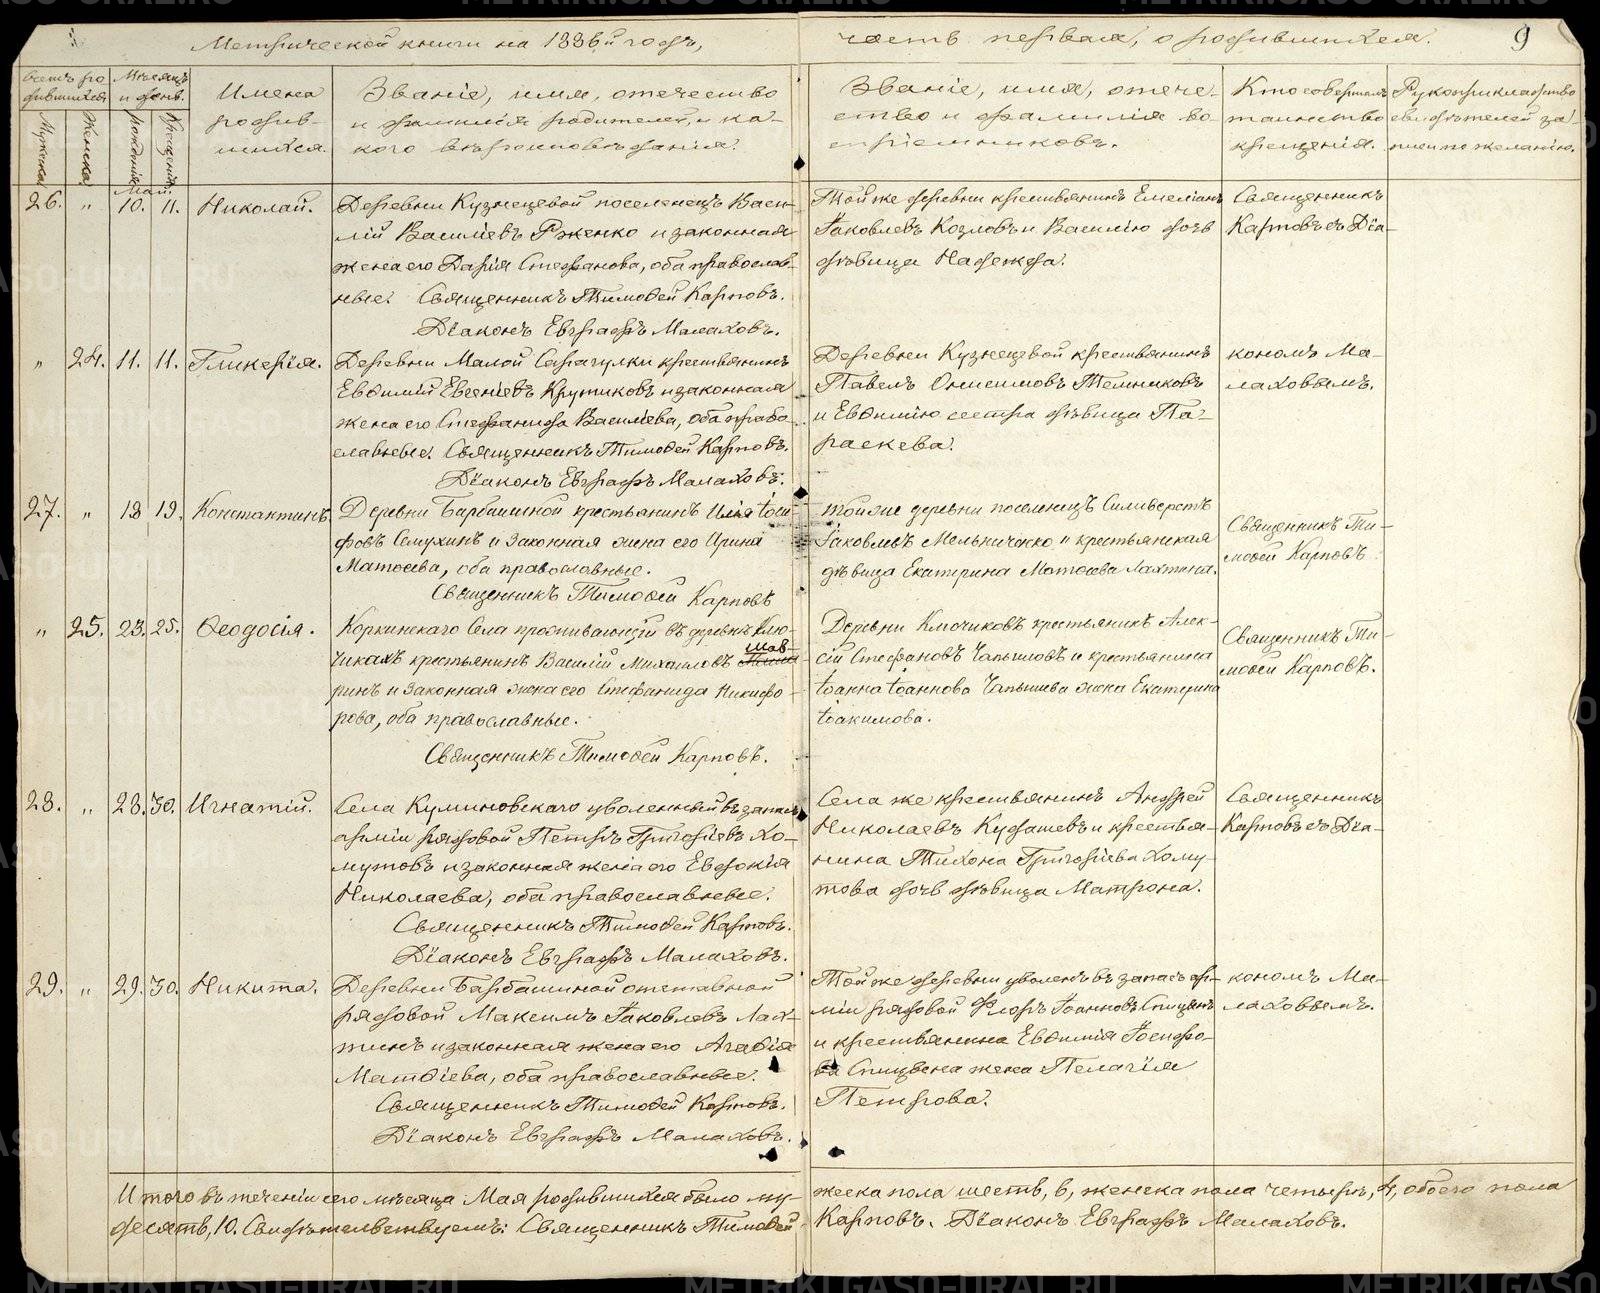 Метрической книги на 1886й годъ,
часть первая, о родившихся.
9
Счетъ ро-
дившихся
Мѣсяцъ
и день.
Мужеска
Женска
рожденія
Крещенія
Имена
родив-
шихся.
Званіе, имя, отечество
и фамилія родителей, и ка-
кого вѣроисповѣданія.
Званіе, имя, отече-
ство и фамилія во-
спріемниковъ.
Кто совершалъ
таинство
крещенія.
Рукоприкладство
свидѣтелей за-
писи по желанію.
Май.
26. „ 10. 11. Николай.
Деревни Кузнецевой поселенецъ Васи-
лій Василіевъ Рженко и законная
жена его Дарія Стефанова, оба православ-
ные. Священникъ Тимоѳей Карповъ.
Діаконъ Евграфъ Малаховъ.
Той же деревни крестьянинъ Емеліанъ
Іаковлевъ Козловъ и Василію дочь
дѣвица Надежда.
Священникъ
Карповъ съ Діа-
„ 24. 11. 11. Гликерія.
Деревни Малой Сарагулки крестьянинъ
Евѳимій Евсеніевъ Крутиковъ и законная
жена его Стефанида Василіева, оба право-
славные. Священникъ Тимоѳей Карповъ.
Діаконъ Евграфъ Малаховъ.
Деревни Кузнецевой крестьянинъ
Павелъ Онисимовъ Темниковъ
и Евѳимію сестра дѣвица Па-
раскева.
кономъ Ма-
лаховымъ.
27. „ 18 19. Константинъ.
Деревни Барбашиной крестьянинъ Илія Іоси-
фовъ Семухинъ и законная жена его Ирина
Матѳеева, оба православные.
Священникъ Тимоѳей Карповъ
той же деревни поселенецъ Сильверстъ
Іаковлевъ Мельниченко и крестьянская
дѣвица Екатерина Матѳеева Лахтина.
Священникъ Ти-
моѳей Карповъ
„ 25. 23. 25. Ѳеодосія.
Коркинскаго Села проживающій въ деревнѣ Клю-
чикахъ крестьянинъ Василій Михаиловъ Мав-
ринъ и законная жена его Стефанида Никифо-
рова, оба православные.
Священникъ Тимоѳей Карповъ.
Деревни Ключиковъ крестьянинъ Алек-
сій Стефановъ Чапышовъ и крестьянина
Іоанна Іоаннова Чапышева жена Екатерина
Іоакимова.
Священникъ Ти-
моѳей Карповъ.
28. „ 28. 30. Игнатій.
Села Куминовскаго уволенный въ запасъ
арміи рядовой Петръ Григоріевъ Хо-
мутовъ и законная жена его Евдокія
Николаева, оба православные.
Священникъ Тимоѳей Карповъ.
Діаконъ Евграфъ Малаховъ.
Села же крестьянинъ Андрей
Николаевъ Кудашевъ и крестья-
нина Тихона Григоріева Хому-
това дочь дѣвица Матрона.
Священникъ
Карповъ съ Діа-
29. „ 29. 30. Никита.
Деревни Барбашиной отставной
рядовой Максимъ Іаковлевъ Лах-
тинъ и законная жена его Агаѳія
Матѳіева, оба православные.
Священникъ Тимоѳей Карповъ.
Діаконъ Евграфъ Малаховъ.
Той же деревни уволенъ въ запасъ ар-
міи рядовой Флоръ Іоанновъ Спицынъ
и крестьянина Евѳимія Іосифо-
ва Спицына жена Пелагія
Петрова.
кономъ Ма-
лаховымъ.
Итого въ теченіи сего мѣсяца Мая родившихся было му-
жеска пола шесть, 6, женска пола четыре, 4, обоего пола
десять, 10. Свидѣтельствуемъ: Священникъ Тимоѳей
Карповъ. Діаконъ Евграфъ Малаховъ.
METRIKI.GASO-URAL.RU